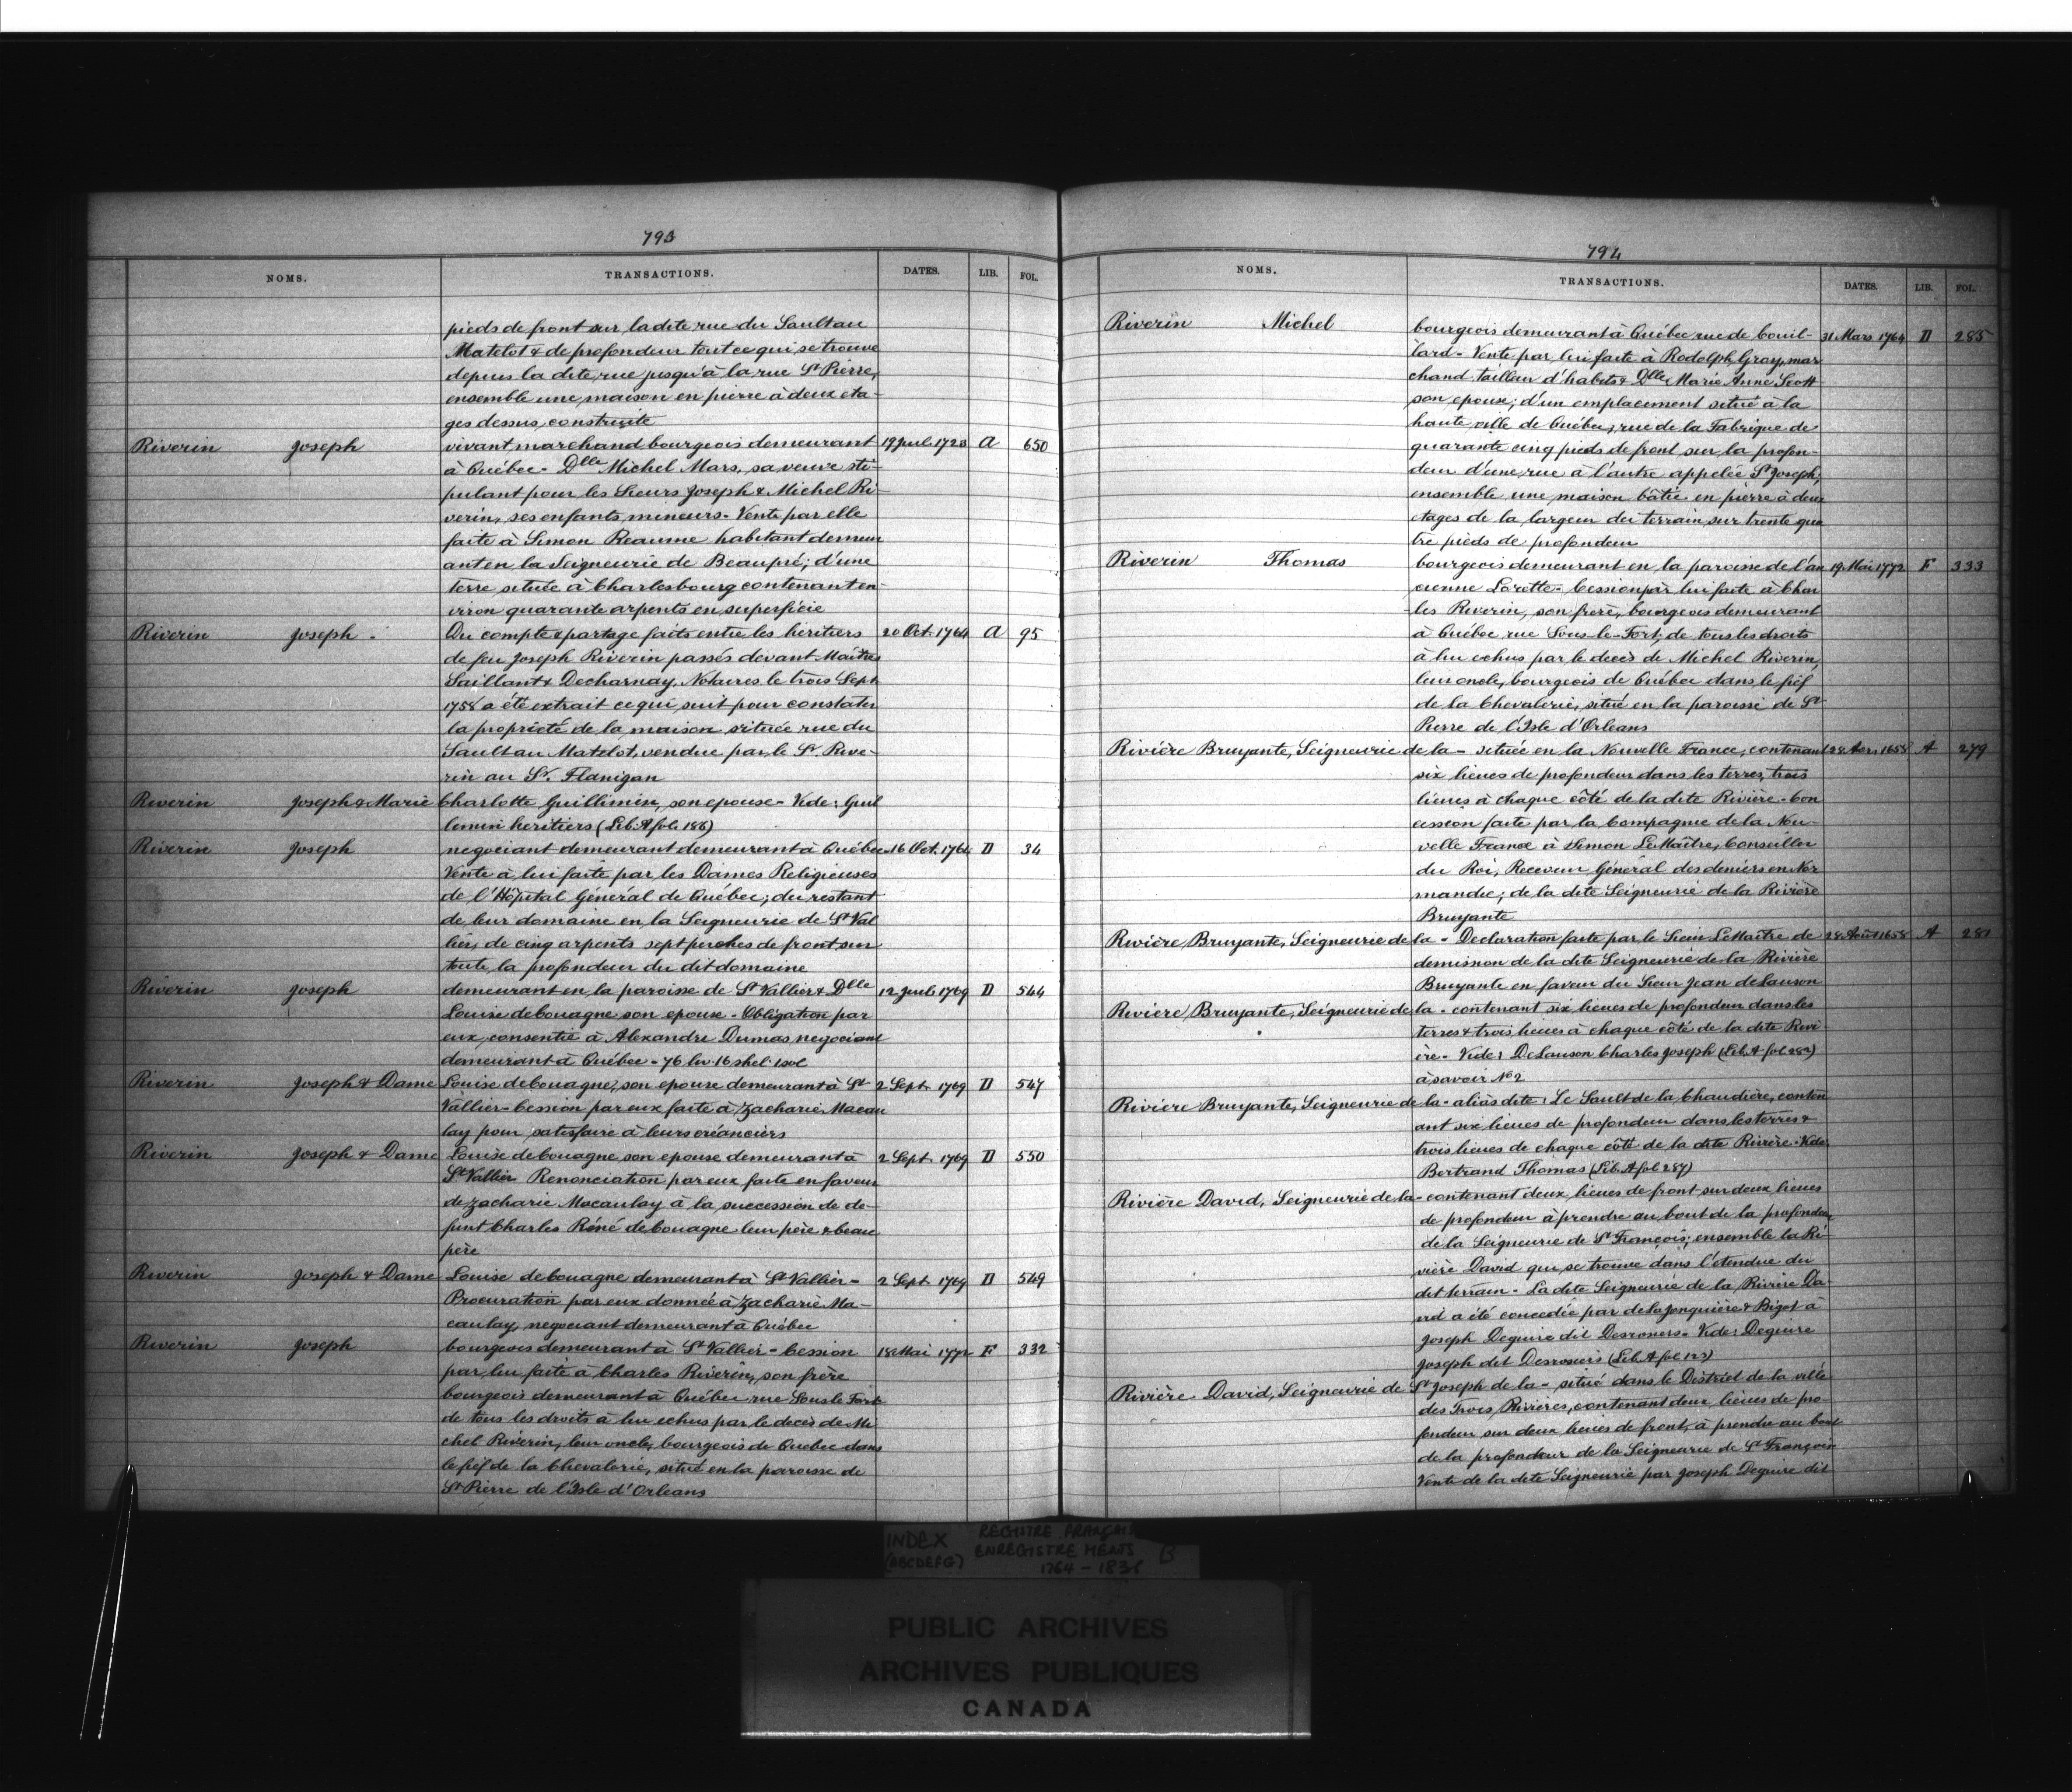 793
NOMS. TRANSACTIONS. DATES. LIB. FOL.
pieds de front sur la dite rue du Saultau
Matelot & de profondeur tout ce qui se trouve
depuis la dite rue jusqu'à la rue St Pierre,
ensemble une maison en pierre à deux éta-
ges dessus construite
Riverin Joseph vivant marchand bourgeois demeurant 19 Juil. 1723 A 650
à Québec - Dlle Michel Mars, sa veuve sti-
pulant pour les Sieurs Joseph & Michel Ri-
verin, ses enfants mineurs - Vente par elle
faite à Simon Reaume habitant demeur
ant en la Seigneurie de Beaupré; d'une
terre située à Charlesbourg contenant en-
viron quarante arpents en superficie
Riverin Joseph - Du compte & partage faits entre les héritiers 20 Oct. 1764 A 95
de feu Joseph Riverin passés devant Maîtres
Saillant & Decharnay, Notaires le trois Sept
1758 a été extrait ce qui suit pour constater
la propriété de la maison située rue du
Sault au Matelot, vendue par le Sr. Rive-
rin au Sr. Flanigan
Riverin Joseph & Marie Charlotte Guillimin, son epouse - Vide: Guil
limin heritiers (Lib. A fol. 186)
Riverin Joseph negociant demeurant demeurant à Québec - 16 Oct. 1764 D 34
Vente à lui faite par les Dames Religieuses
de l'Hôpital Général de Québec; du restant
de leur domaine en la Seigneurie de St Val
lier, de cinq arpents sept perches de front sur
toute la profondeur du dit domaine
Riverin Joseph demeurant en la paroisse de St Vallier & Dlle 12 Juil. 1769 D 544
Louise de Couagne son epouse - Obligation par
eux consentie à Alexandre Dumas negociant
demeurant à Québec - 76 liv. 16 shel. 1 sol
Riverin Joseph & Dame Louise de Couagne, son epouse demeurant à St 2 Sept. 1769 D 547
Vallier - Cession par eux faite à Zacharie Macau
lay pour satisfaire à leurs créanciers
Riverin Joseph & Dame Louise de Couagne son epouse demeurant à 2 Sept. 1769 D 550
St Vallier Renonciation par eux faite en faveur
de Zacharie Macaulay à la succession de de-
funt Charles Réné de Couagne leur père & beau
père
Riverin Joseph & Dame Louise de Couagne demeurant à St Vallier - 2 Sept 1769 D 549
Procuration par eux donnée à Zacharie Ma-
caulay, negociant demeurant à Québec
Riverin Joseph bourgeois demeurant à St Vallier - Cession 18 Mai 1772 F 332
par lui faite à Charles Riverin, son frère
bourgeois demeurant à Québec rue Sous le Fort
de tous les droits à lui echus par le decès de Mi
chel Riverin, leur oncle, bourgeois de Quebec dans
le fief de la Chevalerie, situé en la paroisse de
St Pierre de l'Isle d'Orleans
794
NOMS. TRANSACTIONS. DATES. LIB. FOL.
Riverin Michel bourgeois demeurant à Québec rue de Couil- 31 Mars 1764 D 285
lard - Vente par lui faite à Rodolph Gray, mar
chand tailleur d'habits & Dlle Marie Anne Scott
son epouse; d'un emplacement situé à la
haute ville de Québec, rue de la Fabrique de
quarante cinq pieds de front sur la profon-
deur d'une rue à l'autre appelée St Joseph,
ensemble une maison bâtie en pierre à deux
étages de la largeur du terrain sur trente qua
tre pieds de profondeur
Riverin Thomas bourgeois demeurant en la paroisse de l'an 19 Mai 1772 F 333
cienne Lorette - Cession par lui faite à Char
les Riverin, son frère, bourgeois demeurant
à Québec rue Sous-le-Fort; de tous les droits
à lui echus par le decès de Michel Riverin,
leur oncle, bourgeois de Québec dans le fief
de la Chevalerie, situé en la paroisse de St
Pierre de l'Isle d'Orleans
Rivière Bruyante, Seigneurie de la - située en la Nouvelle France, contenant 1658 A 279
six lieues de profondeur dans les terres, trois
lieues à chaque côté de la dite Rivière - Con
cession faite par la Compagnie de la Nou-
velle France à Simon LeMaître, Conseiller
du Roi, Receveur Général des deniers en Nor
mandie; de la dite Seigneurie de la Rivière
Bruyante
Rivière Bruyante, Seigneurie de la - Declaration faite par le Sieur LeMaître de 28 Août 1658 A 281
demission de la dite Seigneurie de la Rivière
Bruyante en faveur du Sieur Jean de Lauson
Rivière Bruyante, Seigneurie de la - contenant six lieues de profondeur dans les
terres & trois lieues à chaque côté de la dite Rivi
ère - Vide: DeLauson Charles Joseph (Lib. A fol. 282)
à savoir No 2
Rivière Bruyante, Seigneurie de la - aliàs dite: Le Sault de la Chaudière, conten
ant six lieues de profondeur dans les terres &
trois lieues de chaque côté de la dite Rivière - Vide
Bertrand Thomas (Lib. A fol. 287)
Rivière David, Seigneurie de la - contenant deux lieues de front sur deux lieues
de profondeur à prendre au bout de la profondeur
de la Seigneurie de St François; ensemble la Ri-
vière David qui se trouve dans l'étendue du
dit terrain - La dite Seigneurie de la Rivière Da-
vid a été concedée par de la Jonquière & Bigot à
Joseph Deguire dit Desrosiers - Vide: Deguire
Joseph dit Desrosiers (Lib. A fol. 123)
Rivière David, Seigneurie de St Joseph de la - situé dans le District de la ville
des Trois Rivières, contenant deux lieues de pro-
fondeur sur deux lieues de front, à prendre au bout
de la profondeur de la Seigneurie de St François
Vente de la dite Seigneurie par Joseph Deguire dit
INDEX REGISTRE FRANÇAIS
(ABCDEFG) ENREGISTREMENTS B
1764 - 183
PUBLIC ARCHIVES
ARCHIVES PUBLIQUES
CANADA